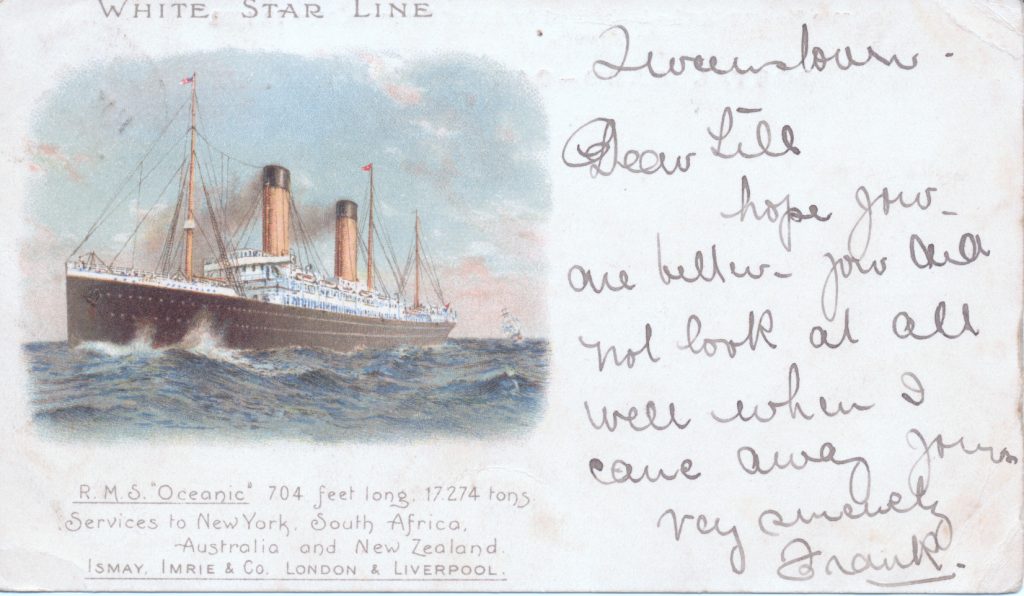 WHITE STAR LINE
R.M.S. "Oceanic" 704 feet long. 17.274 tons.
Services to New York, South Africa,
Australia and New Zealand.
ISMAY, IMRIE & CO. LONDON & LIVERPOOL.
Queenstown -
Dear Lill
hope you
are better - you did
not look at all
well when I
came away yours
very sincerely
Frank.